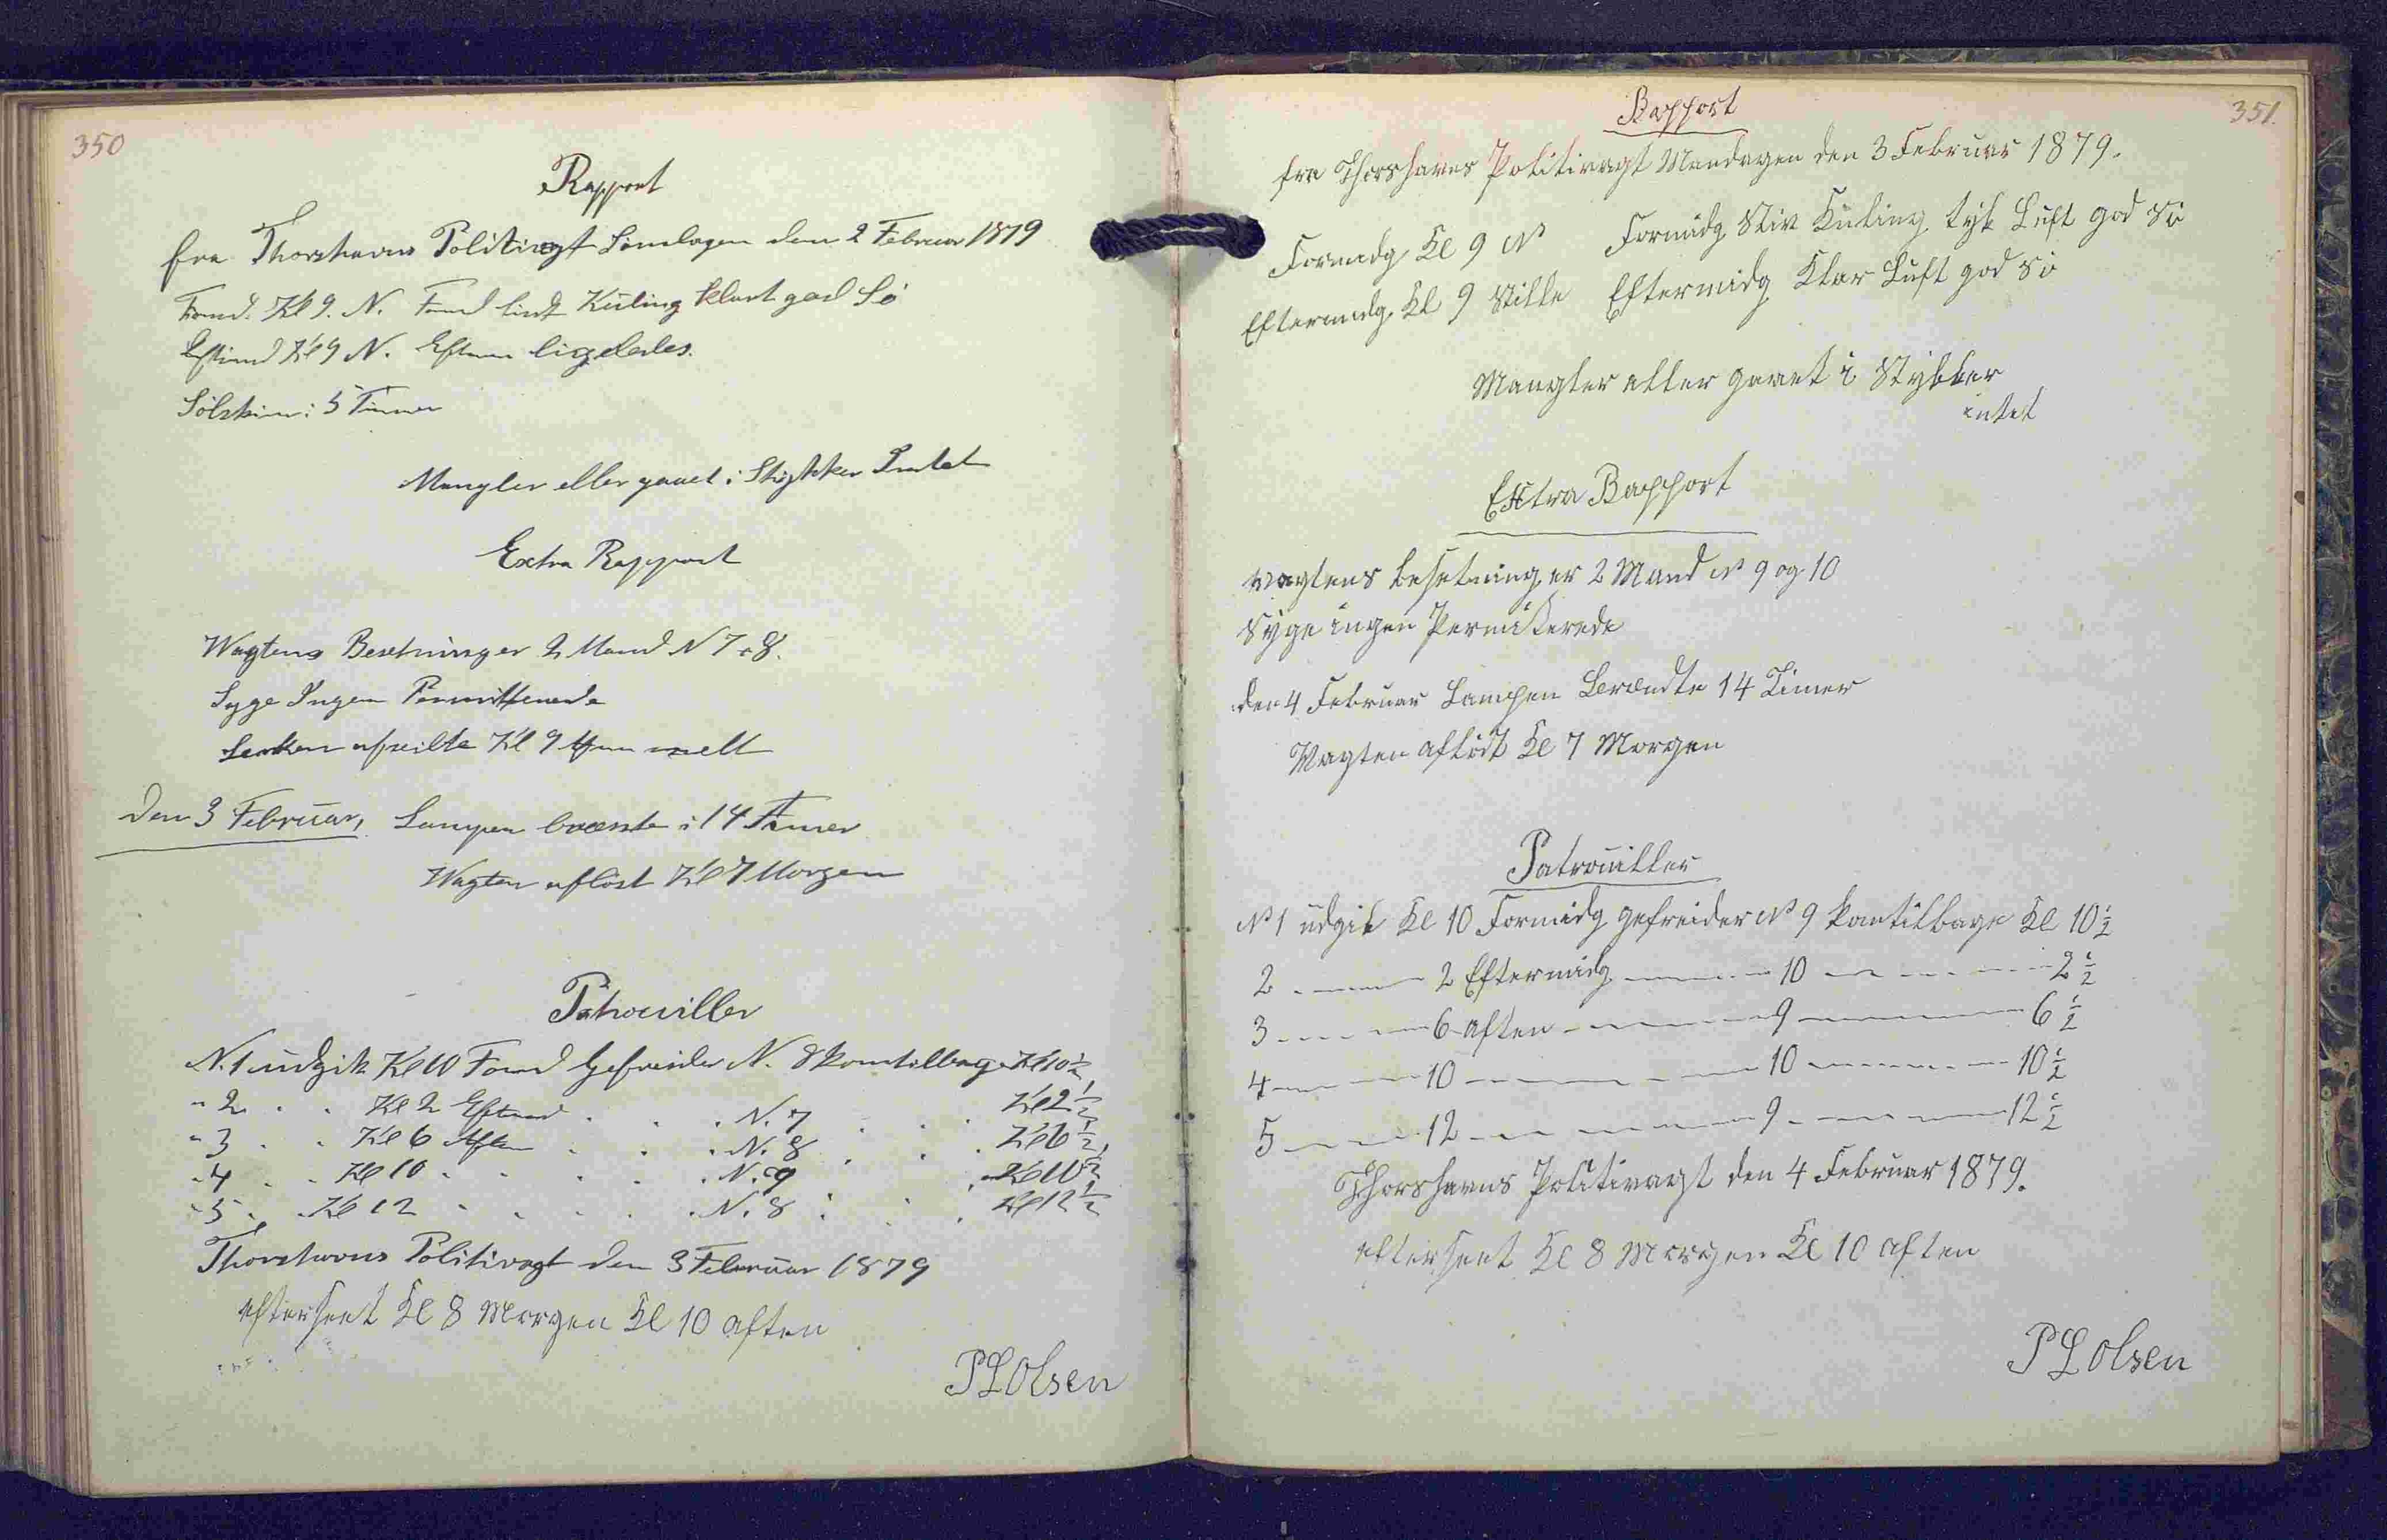 350
Rapport
fra Thorshavns Politivagt Søndagen den 2 Februar 1879
Formd. Kl 9. N. Formd lind Kuling klart god Sø
Eftmd Kl 9 N. Eftm ligeledes.
Solskin: 5 Timer
Mangler eller gaaet i Stykker Intet
Extra Rapport
Wagtens Besetning er 2 Mand N 7 & 8.
Syge Ingen Permitterede
afseilte Kl 9
Den 3 Februar, Lampen brænte i 14 Timer
Wagten afløst Kl 7 Morgen
Patrouiller
N. 1 udgik Kl 10 Formd Gefreider N. 8 kom tilbage Kl 10 1/2
" 2 . . Kl 2 Eftmd . . . N. 7 . . . Kl 2 1/2
" 3 . . Kl 6 Aften . . . N. 8 . . . Kl 6 1/2
" 4 . . Kl 10 . . . . N. 9 . Kl 10 1/2
" 5 . . Kl 12 . . . . . N. 8 . . . Kl 12 1/2
Thorshavns Politivagt den 3 Februar 1879
efterseet Kl 8 Morgen Kl 10 aften
P L Olsen
351.
Rapport
fra Thorshavns Politivagt Mandagen den 3 Februar 1879.
Formidg Kl 9 N Formidg Stiv Kuling tyk Luft god Sö
Eftermidg. Kl 9 Stille Eftermidg Klar Luft god Sö
Mangler eller gaaet i Stykker
intet
Extra Rapport
Vagtens besetning er 2 Mand N 9 og 10
Syge ingen Permitterede
den 4 Februar Lampen Brændte 14 Timer
Vagten aflöst Kl 7 Morgen
Patrouiller
N 1 udgik Kl 10 Formidg gefreider N 9 kom tilbage Kl 10 1/2
2 — 2 Eftermidg — 10 — 2 1/2
3 — 6 aften — 9 — 6 1/2
4 — 10 — 10 — 10 1/2
5 — 12 — 9 — 12 1/2
Thorshavns Politivagt den 4 Februar 1879.
efterseet Kl 8 Morgen Kl 10 aften
P L Olsen